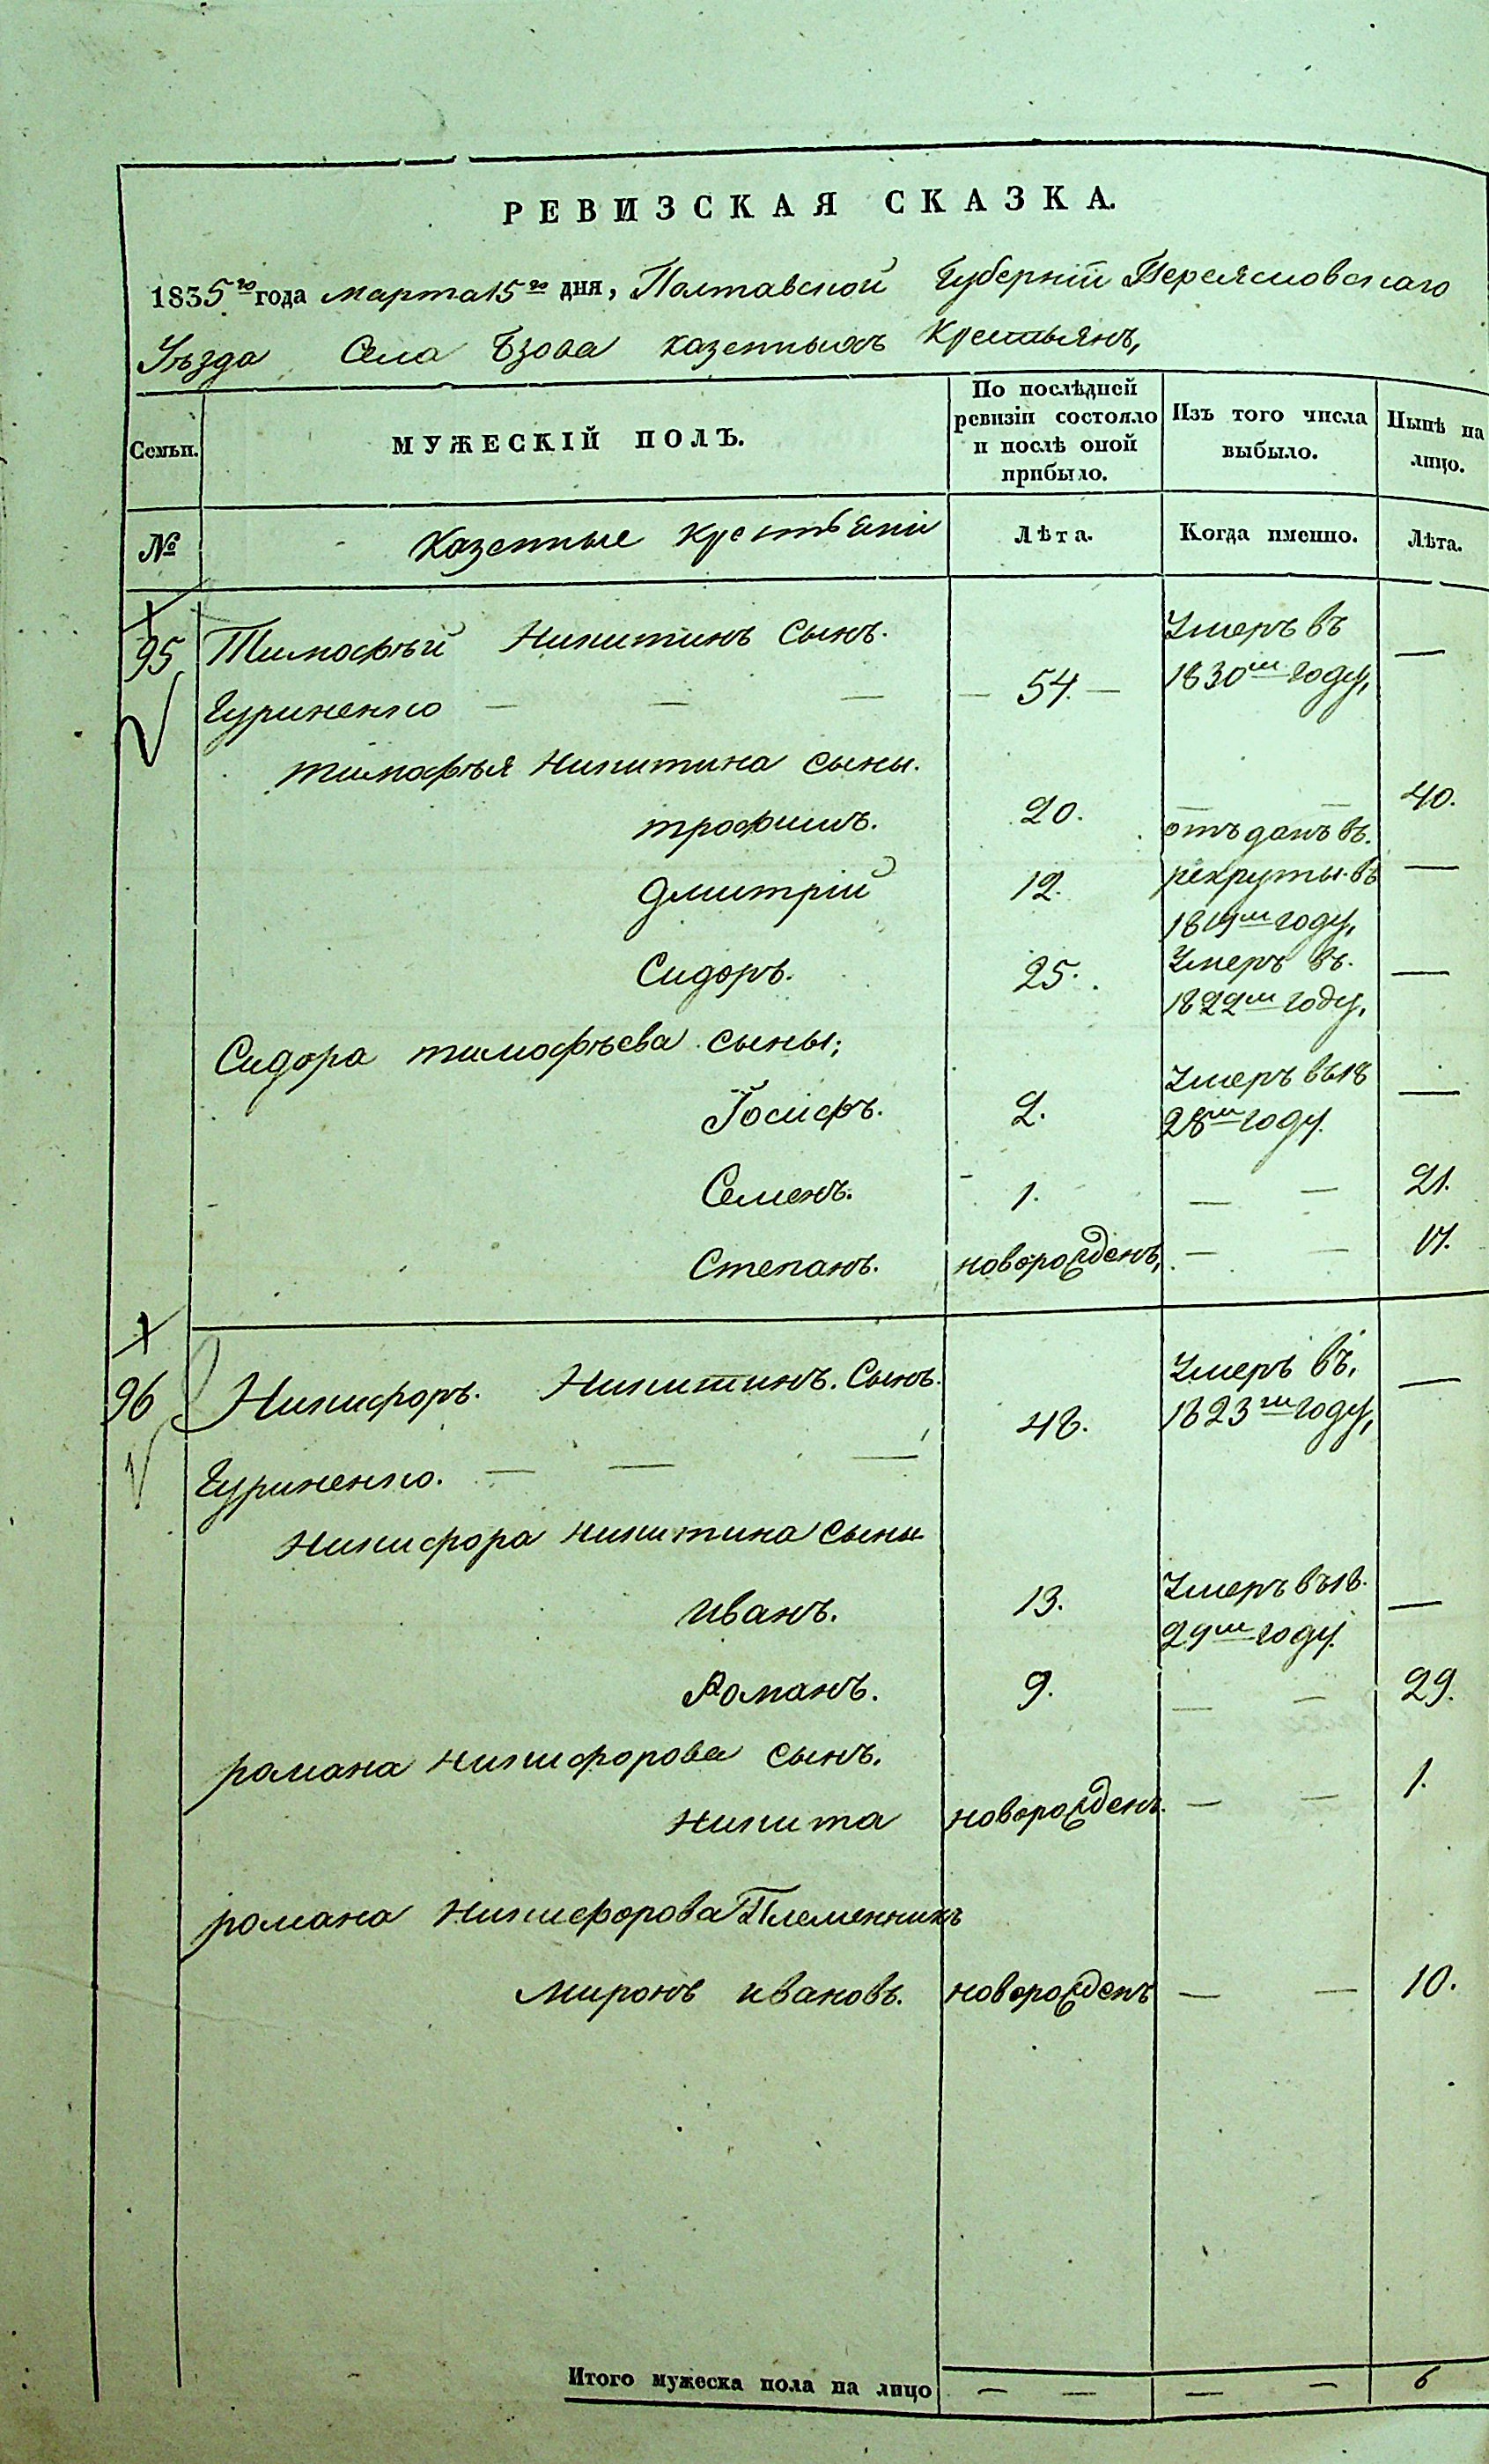 РЕВИЗСКАЯ СКАЗКА.
1835го года марта 15го дня, Полтавской Губерніи Переясловскаго
Уѣзда Села Бзова казенныхъ Крестьянъ,
Семьи.
МУЖЕСКІЙ ПОЛЪ.
По послѣдней ревизіи состояло и послѣ оной прибыло.
Изъ того числа выбыло.
Нынѣ на лицо.
№ казенные крестьяни Лѣта. Когда именно. Лѣта.
95 Тимофѣй Никитинъ Сынъ. Умеръ въ —
Гуриненко — — — — 54. — 1830м году,
тимофѣя Никитина сыны.
трофимъ. 20. — — 40.
отъданъ въ
дмитрій 12. рекруты въ —
1819м году,
Сидоръ. 25. Умеръ въ. —
1822м году,
Сидора тимофѣева сыны;
Іосифъ. 2. Умеръ въ 18 —
28м году.
Семенъ. 1. — — 21.
Степанъ. новорожденъ, — — 17.
96 Никифоръ. Никитинъ. Сынъ. Умеръ въ, —
48. 1823м году,
Гуриненко. — — —
Никифора никитина сыны
иванъ. 13. Умеръ въ 18. —
29м году.
Романъ. 9. — — 29.
романа никифорова сынъ.
никита новорожденъ. — — 1.
романа никифорова Племенникъ
миронъ ивановъ. новорожденъ — — 10.
Итого мужеска пола на лицо — — — — 6